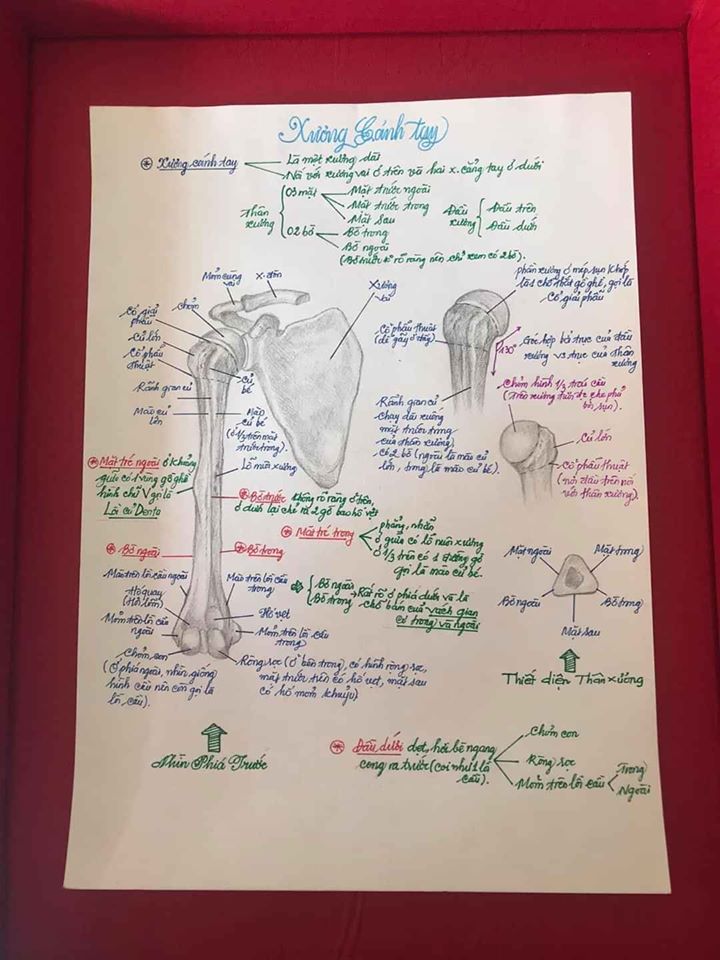 Xương Cánh tay
* Xương cánh tay
Là một xương dài
Nối với xương vai ở trên và hai x. cẳng tay ở dưới
Thân xương
03 mặt
Mặt trước ngoài
Mặt trước trong
Mặt sau
02 bờ
Bờ trong
Bờ ngoài
(Bờ trước k rõ ràng nên chỉ xem có 2 bờ).
Đầu xương
Đầu trên
Đầu dưới
Mỏm cùng vai
X. đòn
Xương vai
Chỏm
Cổ giải phẫu
Củ lớn
Cổ phẫu thuật
Rãnh gian củ
Mào củ lớn
Củ bé
Mào củ bé
(ở 1/3 trên mặt
trước trong).
Lỗ nuôi xương
* Mặt trc ngoài ở khoảng
giữa có 1 vùng gồ ghề
hình chữ V gọi là
Lồi củ Delta
* Bờ trước không rõ ràng ở trên,
ở dưới lại chỉ ra 2 gờ bao hố vẹt
* Mặt trc trong
phẳng, nhẵn
ở giữa có lỗ nuôi xương
ở 1/3 trên có 1 đường gồ
gọi là mào củ bé.
* Bờ ngoài
* Bờ trong
Bờ ngoài
Bờ trong
Rất rõ ở phía dưới và là
chỗ bám của vách gian
cơ trong và ngoài
Mào trên lồi cầu ngoài
Hố quay
(Hố lõm)
Mỏm trên lồi cầu
ngoài
Chỏm con
(Ở phía ngoài, nhìn giống
hình cầu nên còn gọi là
lồi cầu).
Mào trên lồi cầu
trong
Hố vẹt
Mỏm trên lồi cầu
trong
Ròng rọc (Ở bên trong), có hình ròng rọc,
mặt trước trên có hố vẹt, mặt sau
có hố mỏm khuỷu)
Nhìn Phía Trước
phần xương ở mép sụn khớp
là 1 chỗ thắt gồ ghề, gọi là
Cổ giải phẫu
Cổ phẫu thuật
(dễ gãy ở đây)
130°
Góc hợp bởi trục của đầu
xương vs trục của thân
xương
Rãnh gian củ
chạy dài xuống
mặt trước trong
của thân xương)
có 2 bờ (ngoài là mào củ
lớn, trong là mào củ bé).
Chỏm hình 1/3 trái cầu
(trên xương tươi đc che phủ
bởi sụn).
Củ lớn
Cổ phẫu thuật
(nơi đầu trên nối
với thân xương).
Mặt ngoài
Mặt trong
Bờ ngoài
Bờ trong
Mặt sau
Thiết diện Thân xương
* Đầu dưới dẹt, hơi bè ngang
cong ra trước (coi như 1 lồi
cầu).
Chỏm con
Ròng rọc
Mỏm trên lồi cầu
Trong
Ngoài